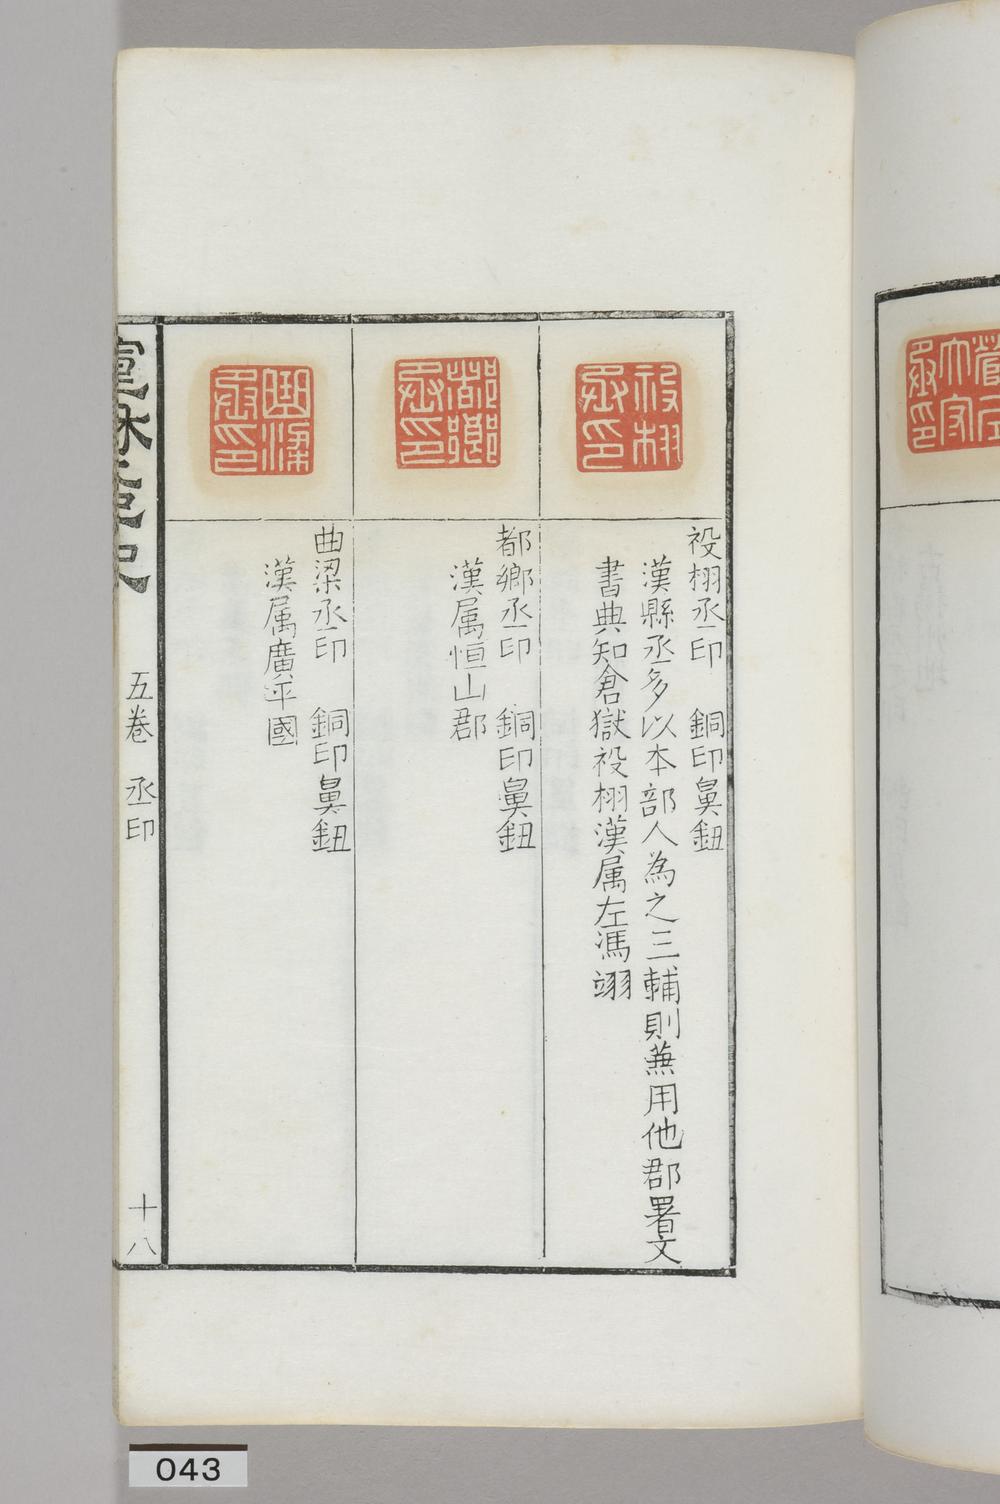 祋栩丞印
祋栩丞印　銅印鼻鈕
漢縣丞多以本部人為之三輔則蕪用他郡署文
書典知倉獄祋栩漢属左馮翊
都鄉丞印
都鄉丞印　銅印鼻鈕
漢属恒山郡
曲梁丞印
曲梁丞印　銅印鼻鈕
漢属廣平國
五卷　丞印
十八
043